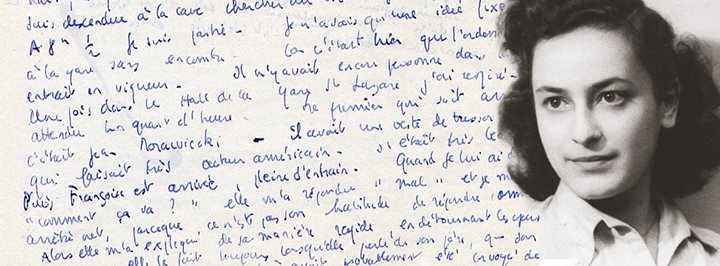 suis descendue à la cave chercher du
A 8h ½ je suis partie. Je n'avais qu'une idée fixe
à la gare sans encombre. Car c'était hier que l'ordonn
entrait en vigueur. Il n'y avait encore personne dans
Une fois dans le Hall de la gare St Lazare j'ai respiré.
attendu un quart d'heure. Le premier qui soit arr
c'était Jean Morawiecki - Il avait une veste de tussor
qui faisait très acteur américain. Il était très be
Puis Françoise est arrivée, pleine d'entrain. Quand je lui ai d
"comment ça va ?" elle m'a répondu "mal" et je me
arrêtée net, parce que ce n'est pas son habitude de répondre comme
Alors elle m'a expliqué de sa manière rapide en détournant les yeux
elle le fait toujours lorsqu'elle parle de son père, que son
probablement été envoyé de